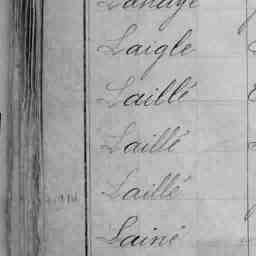 Laigle
Laillé
Laillé
Laillé
Lainé